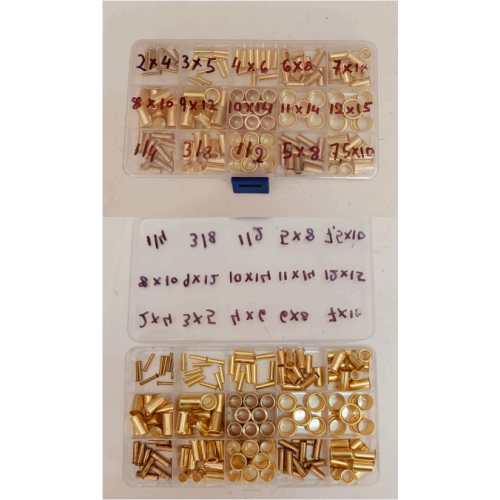 2x4 3x5 4x6 6x8 7x10
8x10 9x12 10x14 11x14 12x15
1/4 3/8 1/2 5x8 7.5x10
1/4 3/8 1/2 5x8 7.5x10
8x10 9x12 10x14 11x14 12x15
2x4 3x5 4x6 6x8 7x10